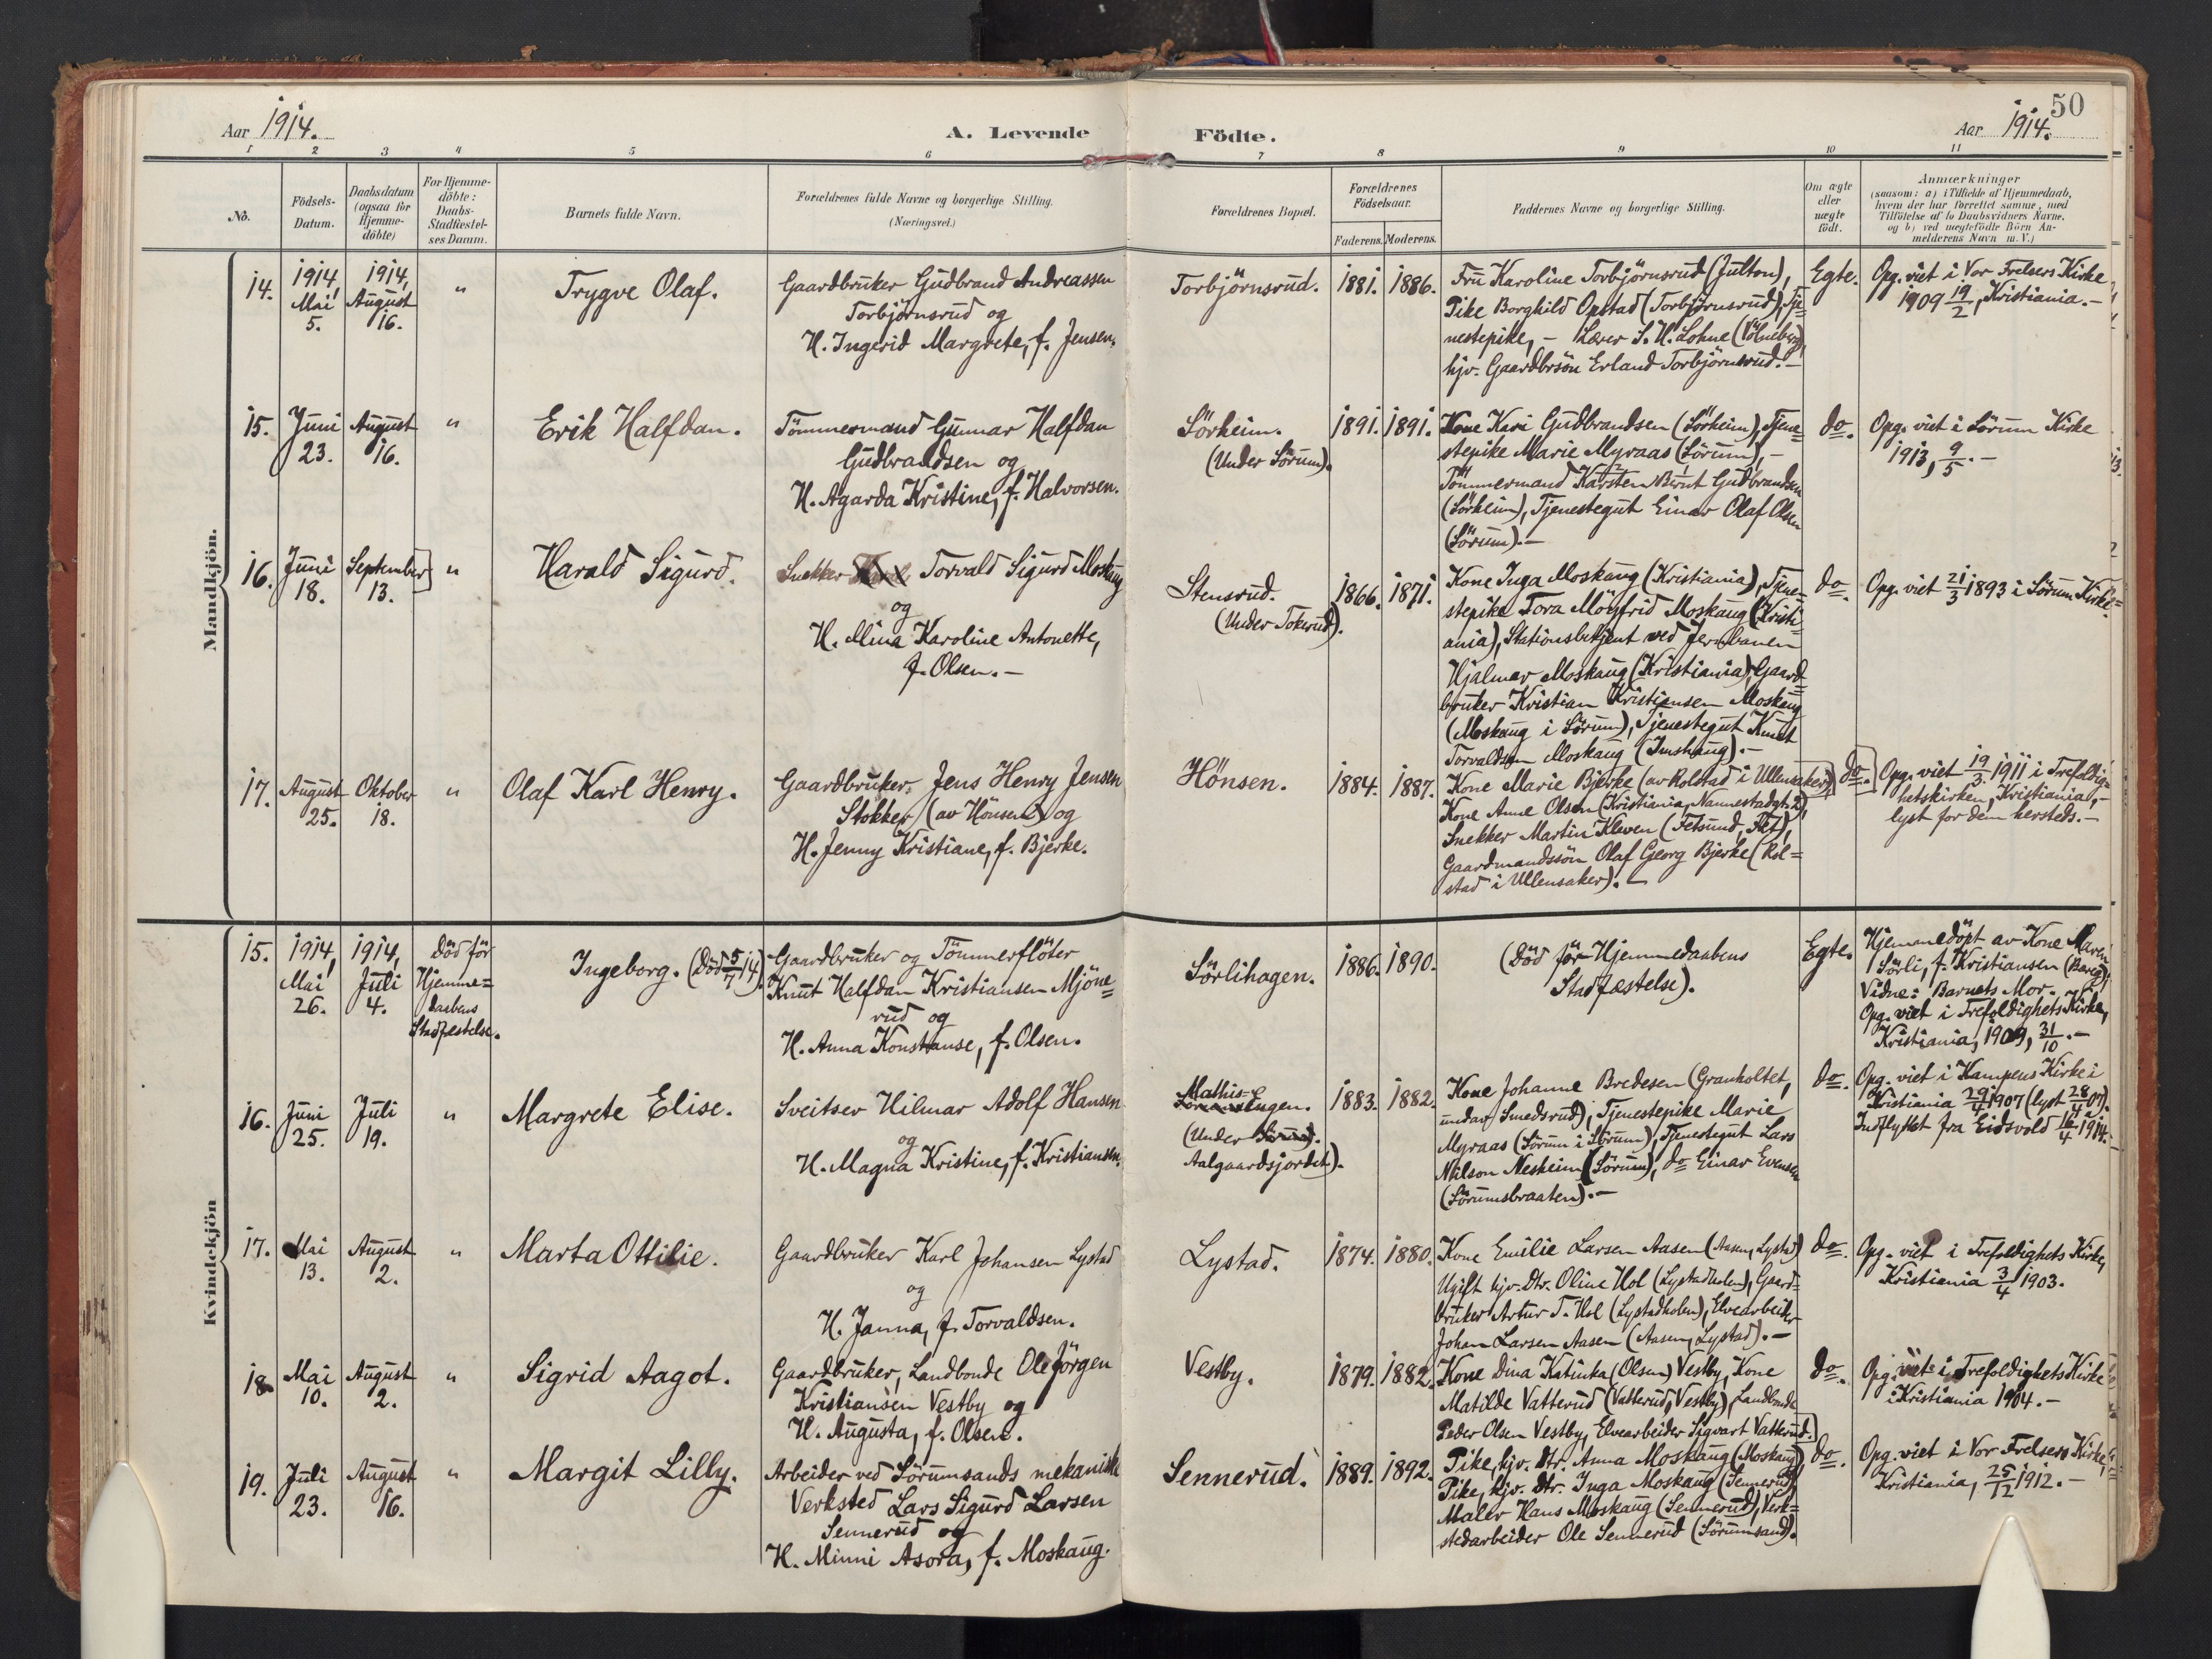 50
Aar 1914.
A. Levende Födte.
Aar 1914.
1 2 3 4 5 6 7 8 9 10 11
No.
Födsels-
Datum.
Daabsdatum
(ogsaa for
Hjemme-
döbte)
For Hjemme-
döbte:
Daabs-
Stadfæstel-
ses Datum.
Barnets fulde Navn.
Forældrenes fulde Navne og borgerlige Stilling.
(Næringsvei.)
Forældrenes Bopæl.
Forældrenes
Födselsaar.
Faderens. Moderens.
Faddernes Navne og borgerlige Stilling.
Om ægte
eller
uægte
födt.
Anmærkninger
(saasom: a) i Tilfælde af Hjemmedaab,
hvem der har forrettet samme, med
Tilföielse af to Daabsvidners Navne.
og b) ved uægtefödte Börn An-
melderens Navn m. V.)
Mandkjön.
14.
1914,
Mai
5.
1914,
August
16.
"
Trygve Olaf.
Gaardbruker Gudbrand Andreassen
Torbjörnsrud og
H. Ingerid Margrete, f. Jensen.
Torbjörnsrud.
1881. 1886.
Fru Karoline Torbjörnsrud (Julton),
Pike Borghild Opstad (Torbjörnsrud), Tje=
nestepike, - Lærer S. H. Lohne
hjv. Gaardbrsön Erland Torbjörnsrud. -
Egte.
Opg. viet i Vor Frelsers Kirke
1909 19/2, Kristiania. -
15.
Juni
23.
August
16.
"
Erik Halfdan.
Tömmermand Gunnar Halfdan
Gudbrandsen og
H. Agarda Kristine, f. Halvorsen.
Sörheim.
(Under Sörum).
1891. 1891.
Kone Kari Gudbrandsen (Sörheim), Tjene=
stepike Marie Myraas (Sörum), -
Tömmermand Karsten Bernt Gudbrandsen
(Sörheim), Tjenestegut Einar Olaf Olsen
(Sörum). -
do.
Opg. viet i Sörum Kirke
1913, 9/5. -
16.
Juni
18.
September
13.
"
Harald Sigurd.
Snekker Torvald Sigurd Moskaug
og
H. Mina Karoline Antonette,
f. Olsen. -
Stensrud.
(Under Tokerud).
1866. 1871.
Kone Inga Moskaug (Kristiania), Tjene=
stepike Tora Möyfrid Moskaug (Kristi=
ania), Stationsbetjent ved Jernbanen
Hjalmar Moskaug (Kristiania), Gaard=
bruker Kristian Kristiansen Moskaug
(Moskaug i Sörum), Tjenestegut Knut
Torvaldsen Moskaug (Imshaug). -
do.
Opg. viet 21/3 1893 i Sörum Kirke=
17.
August
25.
Oktober
18.
"
Olaf Karl Henry.
Gaardbruker, Jens Henry Jensen
Stokker (av Hönsen) og
H. Jenny Kristiane, f. Bjerke.
Hönsen.
1884. 1887.
Kone Marie Bjerke (av Rolstad i Ullensaker),
Kone Anne Olsen (Kristiania, Nannestadgt. 2),
Snekker Martin Kleven (Fetsund, Fet),
Gaardmandssön Olaf Georg Bjerke (Rol=
stad i Ullensaker). -
do.
Opg. viet 19/3 1911 i Trefoldig=
hetskirken, Kristiania, -
lyst for dem hersteds. -
Kvindekjön
15.
1914,
Mai
26.
1914,
Juli
4.
Död för
Hjemme=
daabens
Stadfæstelse.
Ingeborg. (Död 5/7 14).
Gaardbruker og Tömmerflöter
Knut Halfdan Kristiansen Mjöne=
rud og
H. Anna Konstanse, f. Olsen.
Sörlihagen.
1886. 1890.
(Död för Hjemmedaabens
Stadfæstelse).
Egte.
Hjemmedöpt av Kone Maren
Sörli, f. Kristiansen
Vidne: Barnets Mor. -
Opg. viet i Trefoldighets Kirke,
Kristiania, 1909, 31/10. -
16.
Juni
25.
Juli
19.
"
Margrete Elise.
Sveitser Hilmar Adolf Hansen
og
H. Magna Kristine, f. Kristiansen.
Mathis-Engen.
(Under Sörum).
Aalgaardsjordet).
1883. 1882.
Kone Johanne Bredesen (Granholtet,
under Smedsrud), Tjenestepike Marie
Myraas (Sörum i Sörum), Tjenestegut Lars
Nilson Nesheim (Sörum), do Einar Evensen
(Sörumsbraaten). -
do.
Opg. viet i Kampens Kirke i
Kristiania 29/4 1907 (lyst 28/4 07).
Indflyttet fra Eidsvold 16/4 1914.
17.
Mai
13.
August
2.
"
Marta Ottilie.
Gaardbruker Karl Johansen Lystad
og
H. Janna, f. Torvaldsen.
Lystad.
1874. 1880.
Kone Emilie Larsen Aasen (Aasen, Lystad)
Ugift hjv. Dtr. Oline Hol (Lystadholen), Gaard=
bruker Artur T. Hol (Lystadholen), Elvearbeider
Johan Larsen Aasen (Aasen, Lystad). -
do.
Opg. viet i Trefoldighets Kirke,
Kristiania 3/4 1903.
18.
Mai
10.
August
2.
"
Sigrid Aagot.
Gaardbruker, Landbonde Ole Jörgen
Kristiansen Vestby og
H. Augusta, f. Olsen.
Vestby.
1879. 1882.
Kone Dina Katinka (Olsen) Vestby, Kone
Matilde Vatterud (Vatterud, Vestby), Landbonde
Peder Olsen Vestby, Elvearbeider Sigvart Vatterud.
do.
Opg. viet i Trefoldighets Kirke
i Kristiania 1904. -
19.
Juli
23.
August
16.
"
Margit Lilly.
Arbeider ved Sörumsands mekaniske
Verksted Lars Sigurd Larsen
Sennerud og
H. Minni Asora, f. Moskaug.
Sennerud.
1889. 1892.
Pike, hjv. Dtr. Anna Moskaug (Moskaug),
Pike, hjv. Dtr. Inga Moskaug (Sennerud),
Maler Hans Moskaug (Sennerud), Verk=
stedarbeider Ole Sennerud (Sörumsand).
do.
Opg. viet i Vor Frelsers Kirke,
Kristiania, 25/12 1912. -